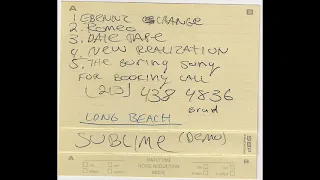 A B
1. EBENNZ SCRANGE
2. ROMEO
3. DALE TAPE
4. NEW REALIZATION
5. THE boring Song
FOR BOOKING CALL
(213) 438 4836
brad
LONG BEACH
SUBLIME (DEMO)
A B
NOISE REDUCTION